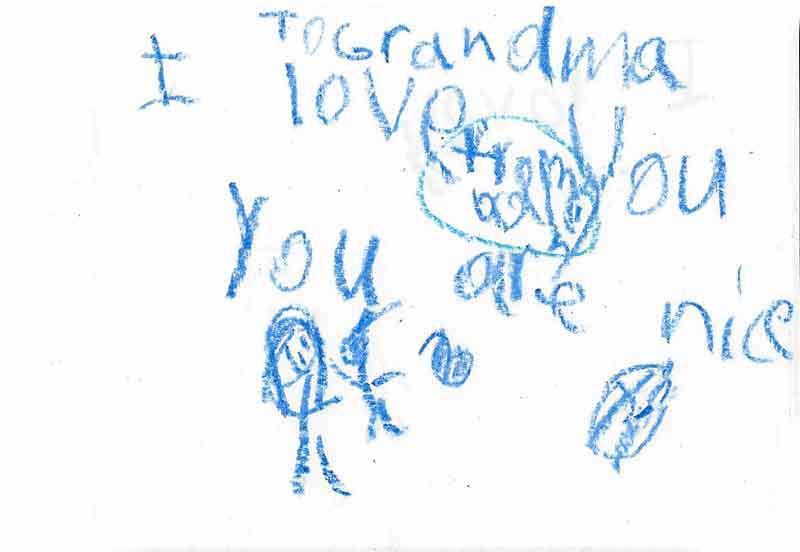 To Grandma
I love you
from
You are nice